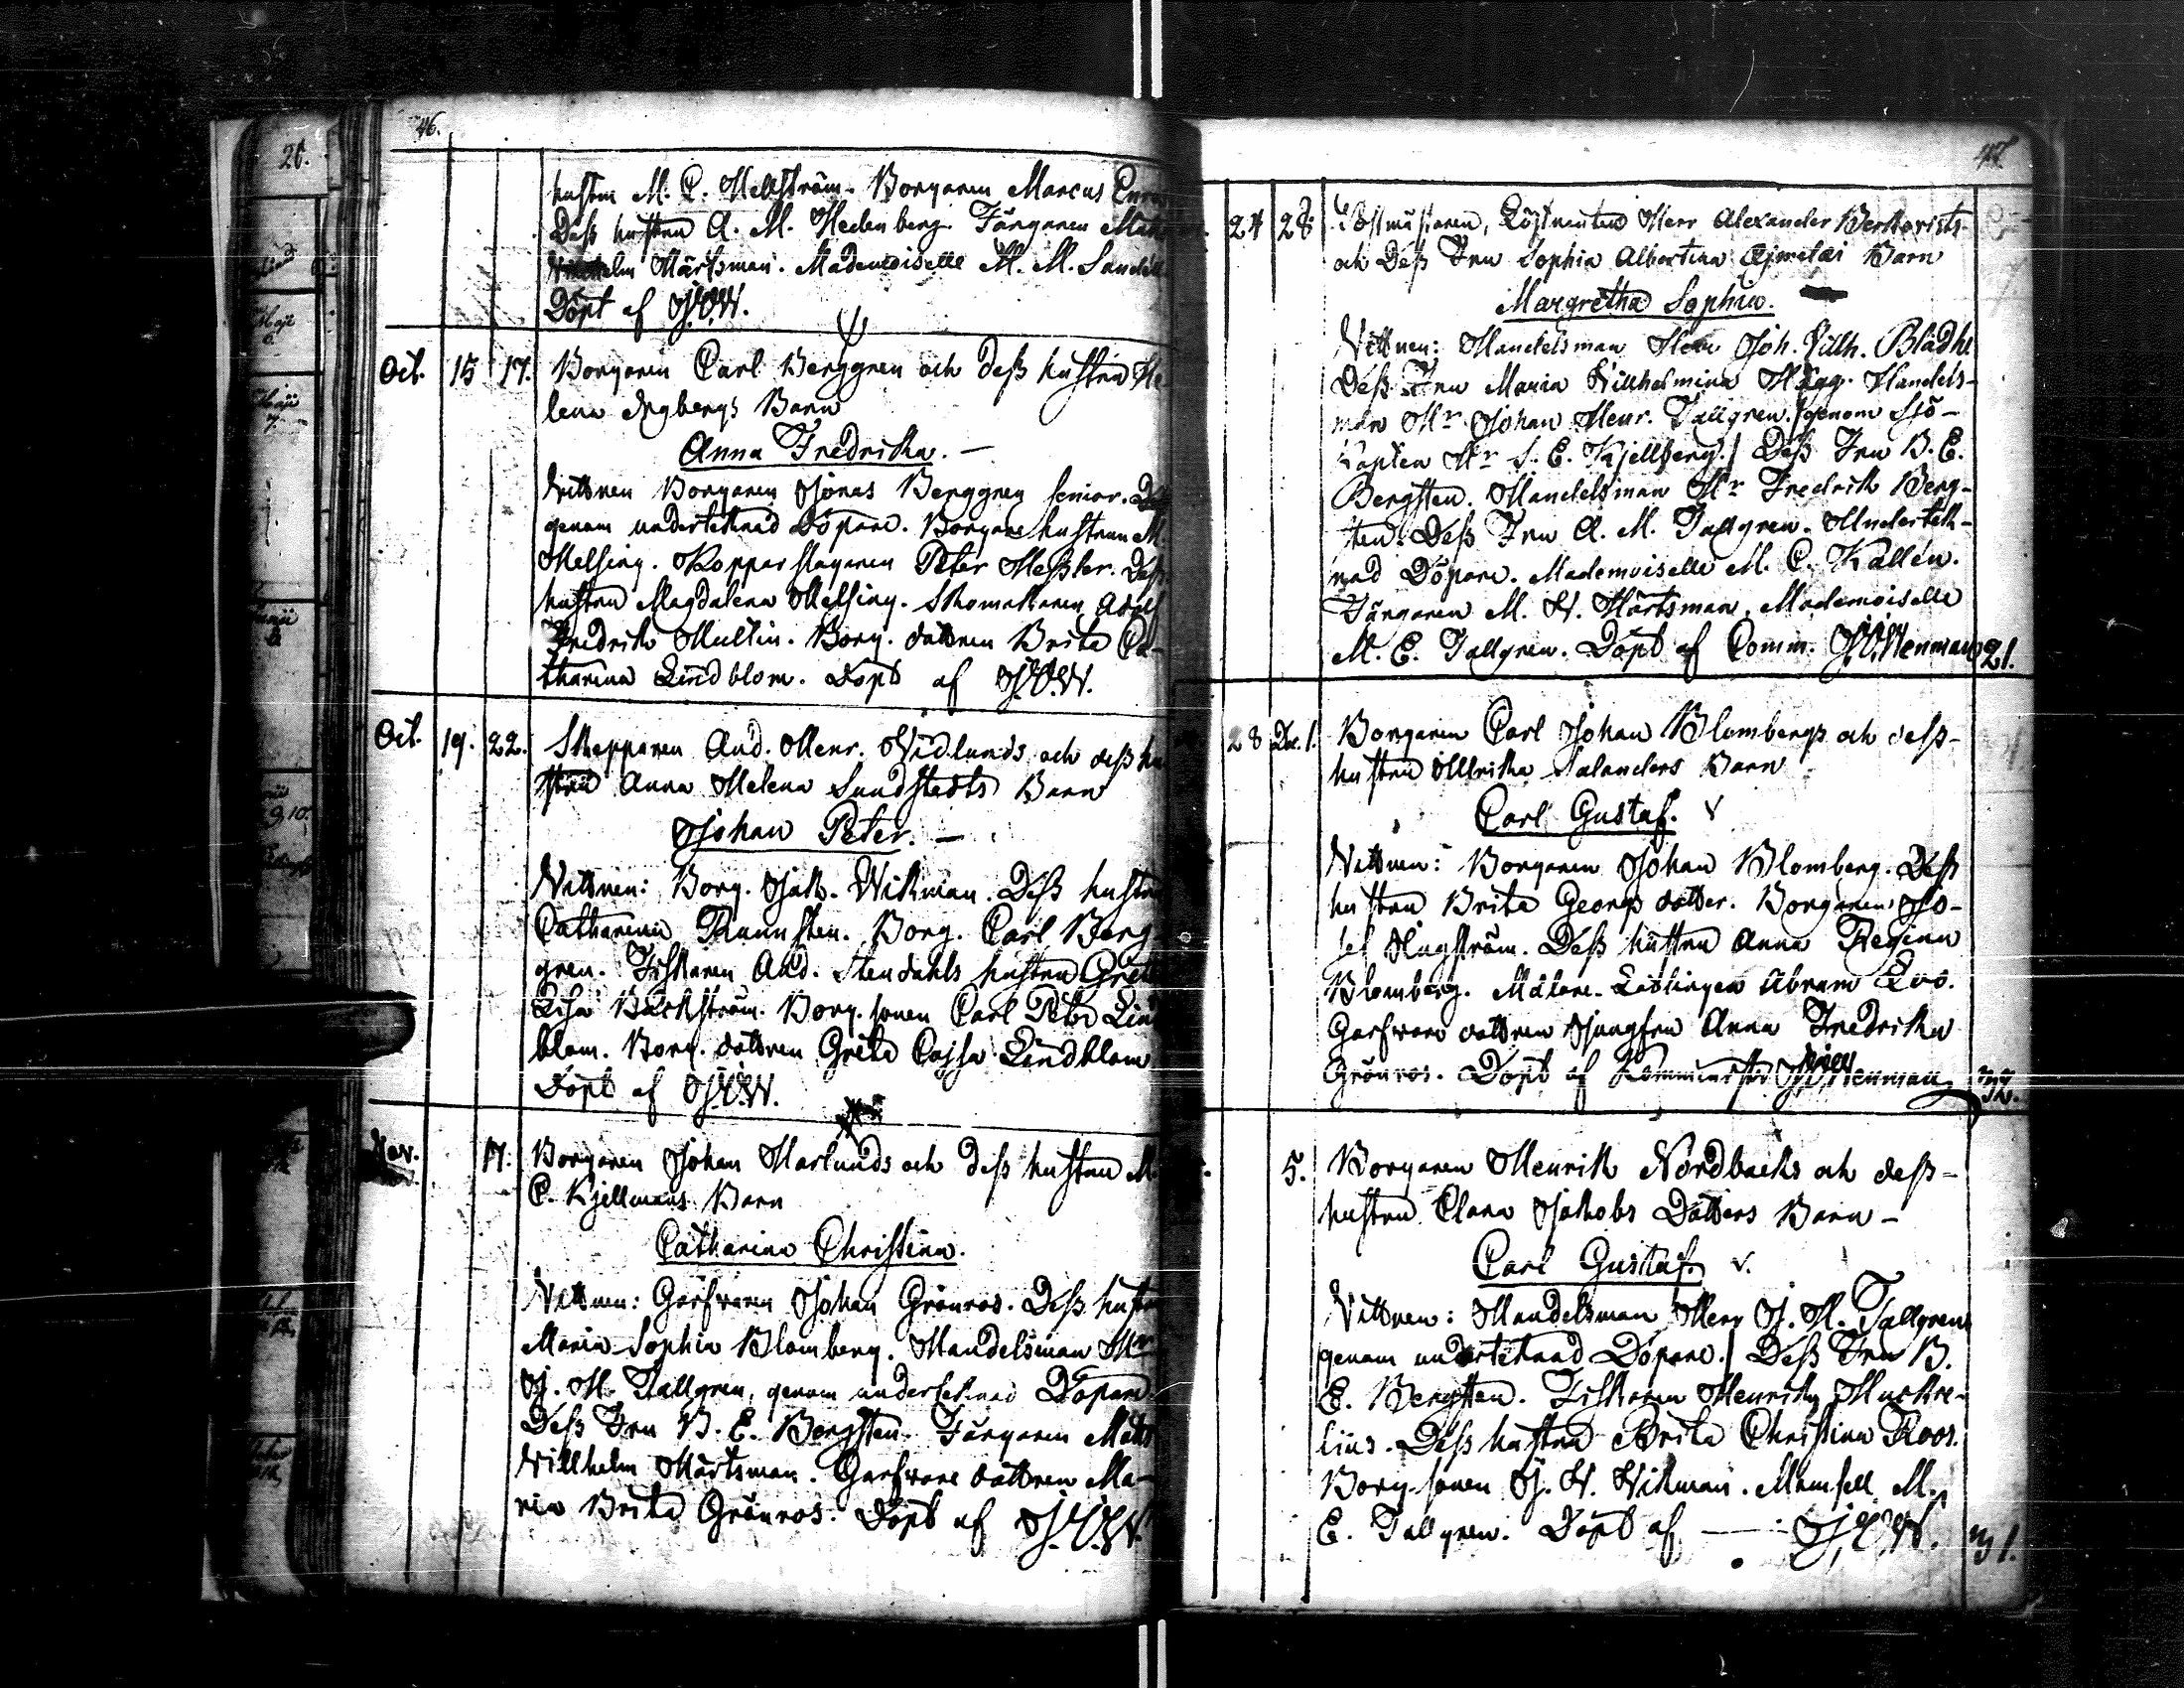 46.
hustru M. C. Hellström. Borgaren Marcus
Dess hustru A. M. Hedenberg. Färgaren
Hartsman. Mademoiselle M. M.
Döpt af J.V.W.
Oct. 15 17. Borgaren Carl Berggren och dess hustru He
lena Barn
Anna Fredrika. -
Vittnen Borgaren Jonas Berggren senior.
genom undertecknad Döpare. Borgare hustrun M.
Helsing. Kopparslagaren Peter Hessler. Dess
hustru Magdalena Helsing. Skomakaren Adolf
Fredrik Multin. Borg. dottren Brita Ca-
tharina Lindblom. Döpt af J.V.W.
Oct. 19. 22. Skepparen And. Henr. Widlunds och dess hu
stru Anna Helena Sundstedts Barn
Johan Peter. -
Vittnen: Borg. Jak. Wikman. Dess hustru
Catharina Runsten. Borg. Carl Berg
gren. Fiskaren And. Stendahls hustru
Lisa Backström. Borg. sonen Carl Petter
blom. Borg. dottren Greta Cajsa Lindblom
Döpt af J.V.W.
Nov. 17. Borgaren Johan Harlunds och dess hustru M
C. Kjellmans Barn
Catharina Christina.
Vittnen: Garfvaren Johan Grönros. Dess hustru
Maria Sophia Blomberg. Handelsman Hr
J. H. Tallgren, genom undertecknad Döpare.
Dess Fru B. E. Bergsten. Färgaren Matts
Willhelm Hartsman. Garfvare dottren Ma-
ria Brita Grönros. Döpt af J.V.W.
47.
24 28. Postmästaren, Löjtnanten Herr Alexander
och Dess Fru Sophia Albertina Barn
Margretha Sophia.
Vittnen: Handelsman Herr Joh. Vilh. Bladh
Dess Fru Maria Wilhelmina Handels-
man Hr Johan Henr. Tallgren / genom Sjö-
Kapten Hr S. E. Kjellberg. / Dess Fru B. E.
Bergsten. Handelsman Hr Fredrik Berg-
sten. Dess Fru A. M. Tallgren. Undertek-
nad Döpare. Mademoiselle M. C. Kallén.
Färgaren M. W. Hartsman. Mademoiselle
M. E. Tallgren. Döpt af Comm. J.V.Wenman 21.
28 Dec. 1. Borgaren Carl Johan Blombergs och dess-
hustru Ulrika Salanders Barn
Carl Gustaf.
Vittnen: Borgaren Johan Blomberg. Dess
hustru Brita Georgs dotter. Borgaren Jo-
sef Hagström. Dess hustru Anna Regina
Blomberg. Målare-Lärlingen Abram
Garfvare dottren Jungfru Anna Fredrika
Grönros. Döpt af J.V.Wenman 32.
5. Borgaren Henrik Nordbacks och dess-
hustru Clara Jakobs Dotters Barn -
Carl Gustaf.
Vittnen: Handelsman Herr J. H. Tallgren
genom undertecknad Döpare. / Dess Fru B.
E. Bergsten. Fiskaren Henrik
lius. Dess hustru Brita Christina Roos.
Borg. sonen J. W. Wikman. Mamsell M.
E. Tallgren. Döpt af J.V.W. 31.